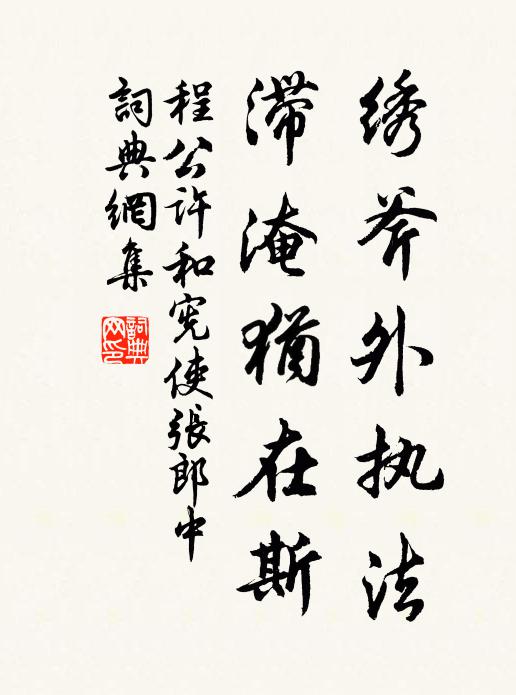 绣斧外执法
滞淹犹在斯
程公许和宪使张郎中
詞典網集
詞典
网印